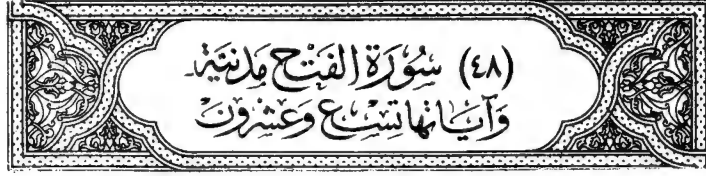 (٤٨) سُورَة الفَتْح مَدَنيَّة
وَآيَاتها تِسْع وَعشْرُونَ